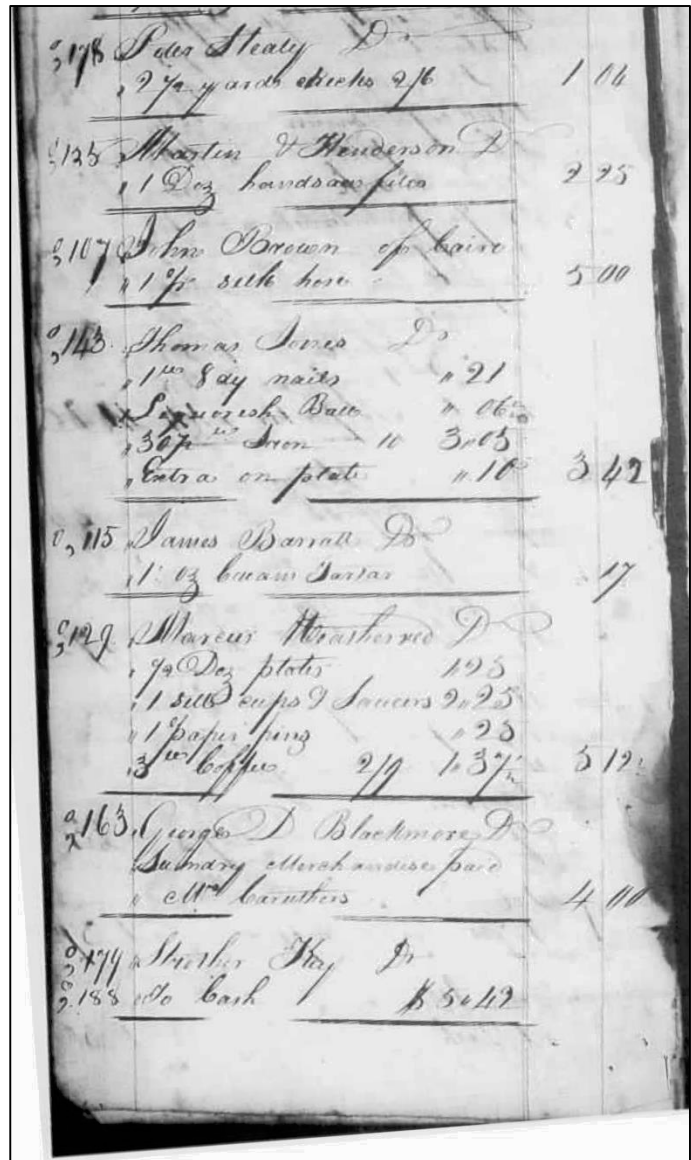 178 Peter Stealy Dr
" 2 1/2 yards checks 2/6 1 04
135 Martin & Henderson Dr
" 1 Doz handsaw files 2 25
107 John Brown of Cairo
" 1 pr silk hose 5 00
143 Thomas Jones Dr
" 1 lb 8 dy nails " 21
" Liquorish Ball " 06
" 30 1/2 lbs Iron 10 3 " 05
" Extra on plate " 10 3 42
115 James Barratt Dr
" 1 oz Cream Tartar 17
129 Marcus Dr
" 1/2 Doz plates 1 " 25
" 1 sett cups & Saucers 2 " 25
" 1 paper pins " 25
" 3 lbs Coffee 2/9 1 " 37 1/2 5 12 1/2
163 George D Blackmore Dr
" Sundry Merchandise paid
" Mrs Caruthers 4 00
179 Strother Key Dr
188 " To Cash $ 5 " 42